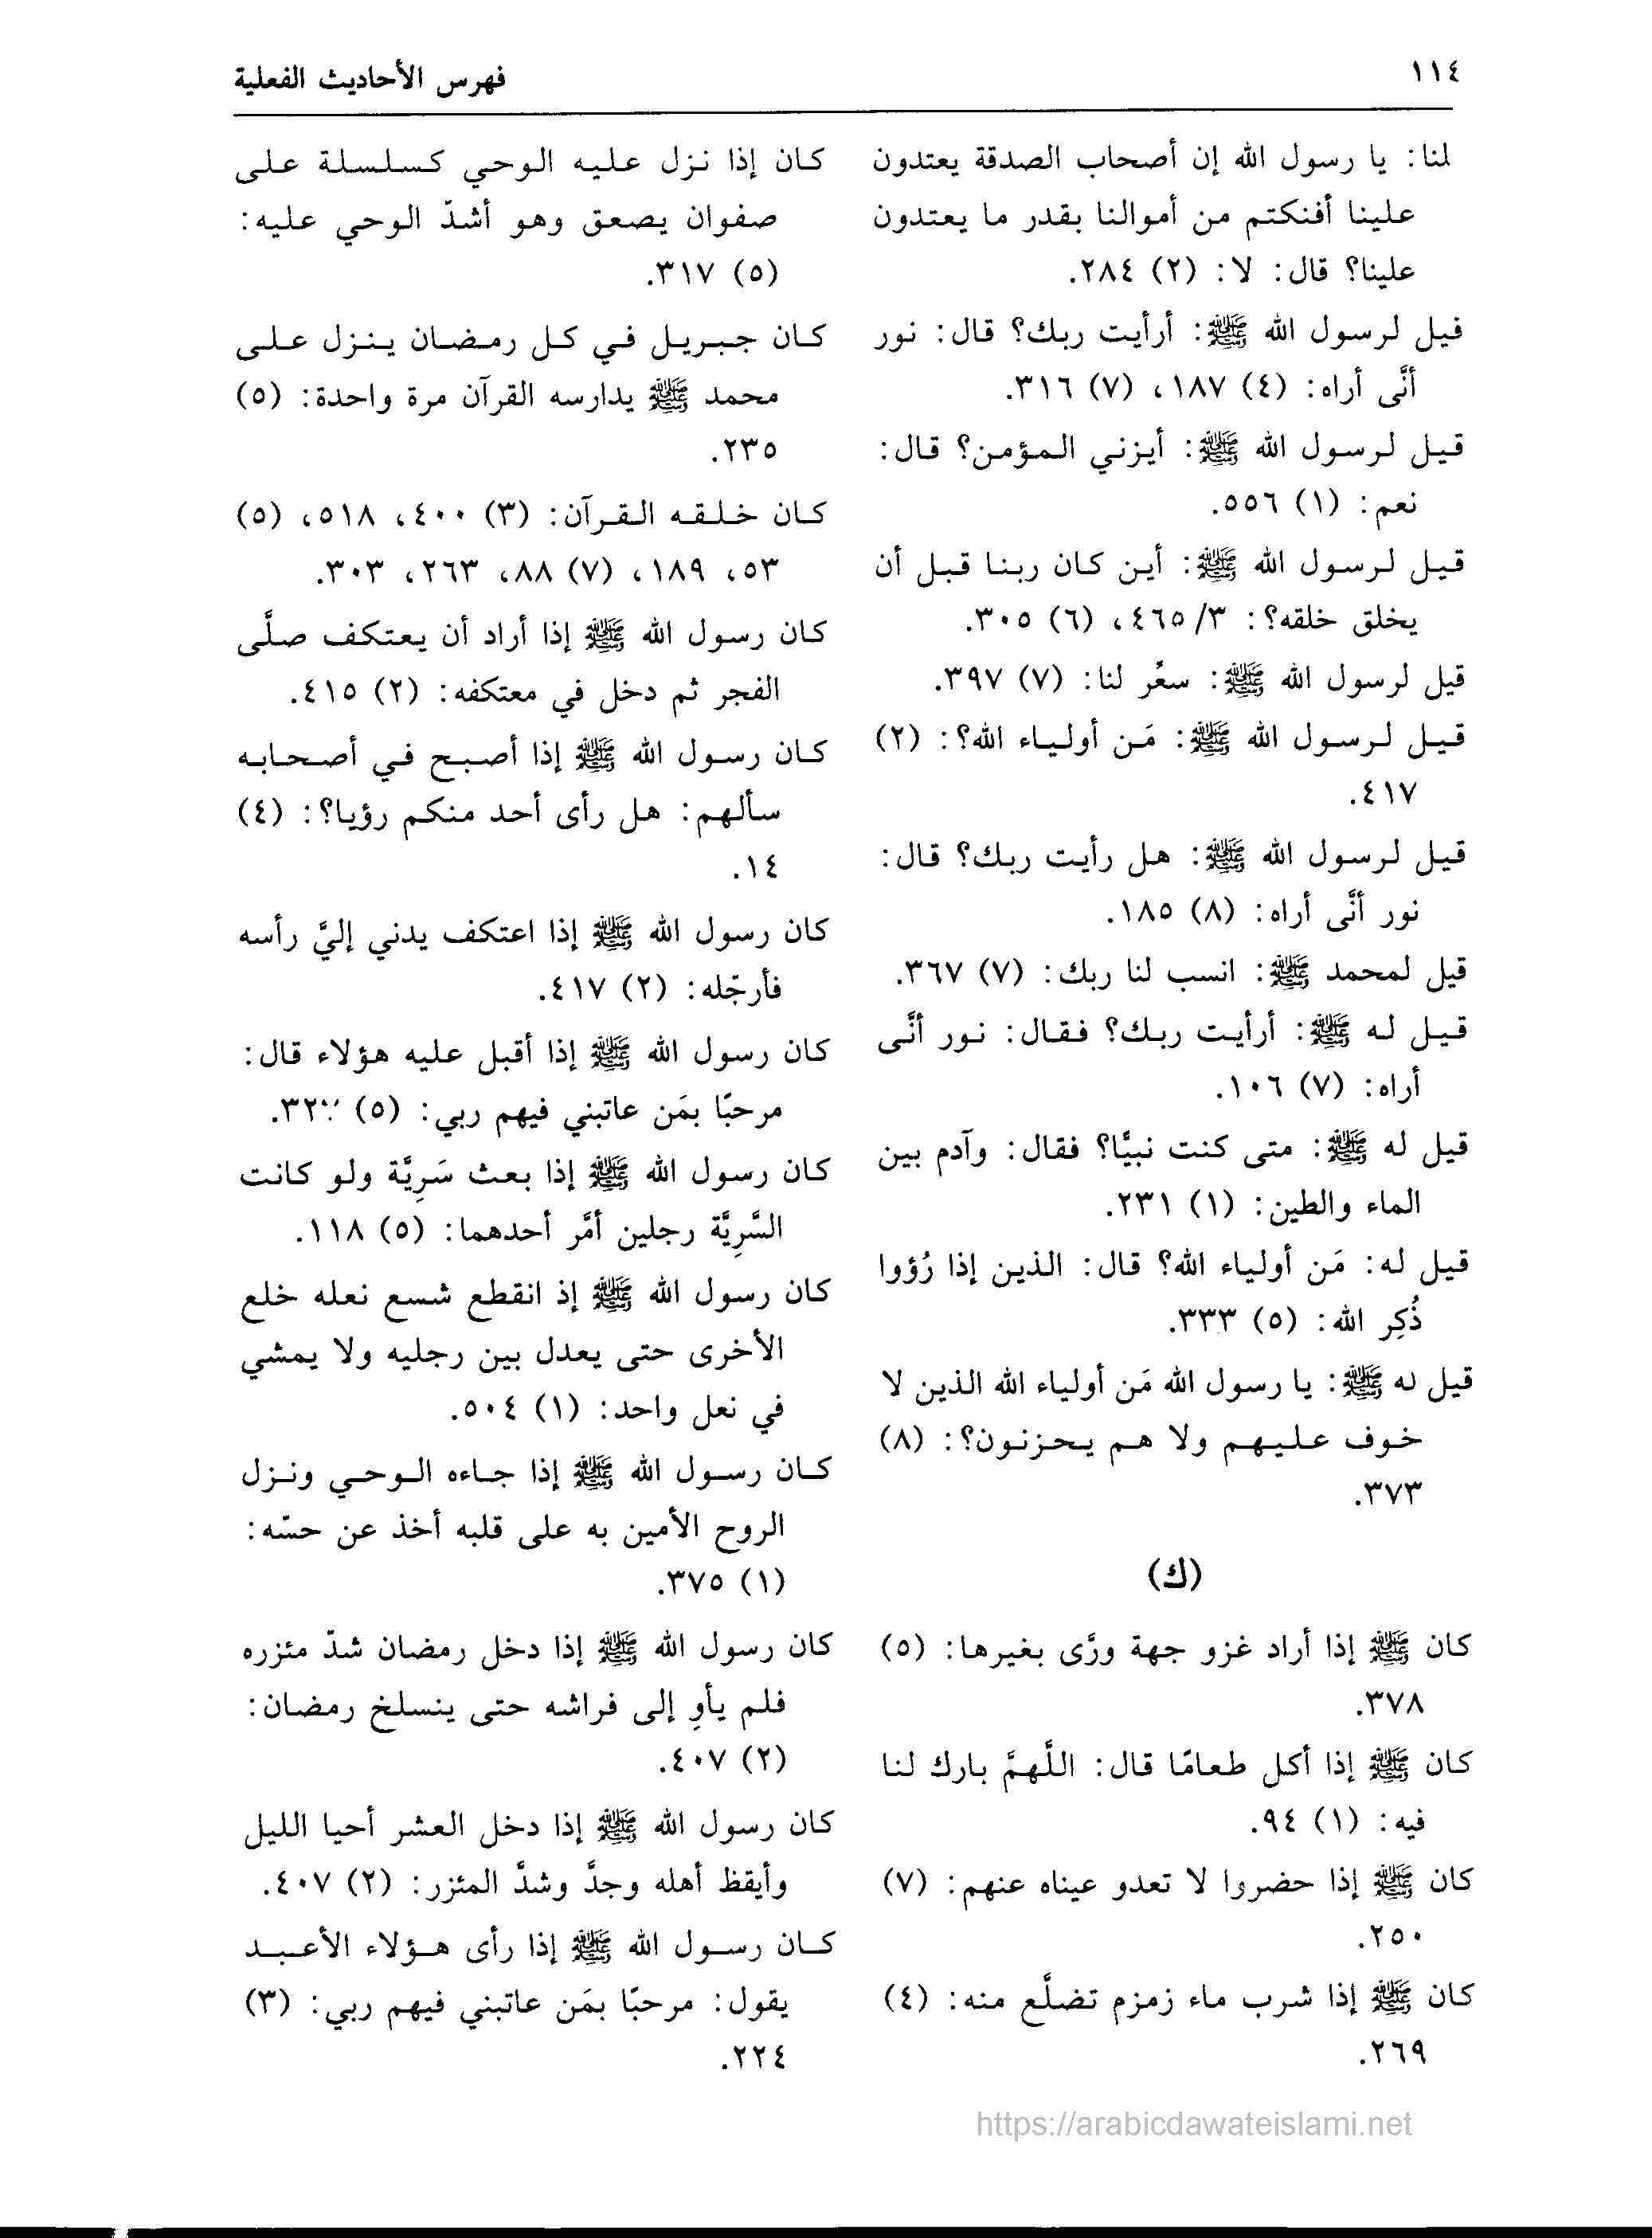 ١١٤
فهرس الأحاديث الفعلية
لنا: يا رسول الله إن أصحاب الصدقة يعتدون
علينا أفنكتم من أموالنا بقدر ما يعتدون
علينا؟ قال: لا: (٢) ٢٨٤.
قيل لرسول الله ﷺ: أرأيت ربك؟ قال: نور
أنَّى أراه: (٤) ١٨٧، (٧) ٣١٦.
قيل لرسول الله ﷺ: أيزني المؤمن؟ قال:
نعم: (١) ٥٥٦.
قيل لرسول الله ﷺ: أين كان ربنا قبل أن
يخلق خلقه؟: ٣/ ٤٦٥، (٦) ٣٠٥.
قيل لرسول الله ﷺ: سعِّر لنا: (٧) ٣٩٧.
قيل لرسول الله ﷺ: مَن أولياء الله؟: (٢)
٤١٧.
قيل لرسول الله ﷺ: هل رأيت ربك؟ قال:
نور أنَّى أراه: (٨) ١٨٥.
قيل لمحمد ﷺ: انسب لنا ربك: (٧) ٣٦٧.
قيل له ﷺ: أرأيت ربك؟ فقال: نور أنَّى
أراه: (٧) ١٠٦.
قيل له ﷺ: متى كنت نبيًّا؟ فقال: وآدم بين
الماء والطين: (١) ٢٣١.
قيل له: مَن أولياء الله؟ قال: الذين إذا رُؤوا
ذُكِر الله: (٥) ٣٣٣.
قيل له ﷺ: يا رسول الله مَن أولياء الله الذين لا
خوف عليهم ولا هم يحزنون؟: (٨)
٣٧٣.
(ك)
كان ﷺ إذا أراد غزو جهة ورَّى بغيرها: (٥)
٣٧٨.
كان ﷺ إذا أكل طعامًا قال: اللَّهمَّ بارك لنا
فيه: (١) ٩٤.
كان ﷺ إذا حضروا لا تعدو عيناه عنهم: (٧)
٢٥٠.
كان ﷺ إذا شرب ماء زمزم تضلَّع منه: (٤)
٢٦٩.
كان إذا نزل عليه الوحي كسلسلة على
صفوان يصعق وهو أشدّ الوحي عليه:
(٥) ٣١٧.
كان جبريل في كل رمضان ينزل على
محمد ﷺ يدارسه القرآن مرة واحدة: (٥)
٢٣٥.
كان خلقه القرآن: (٣) ٤٠٠، ٥١٨، (٥)
٥٣، ١٨٩، (٧) ٨٨، ٢٦٣، ٣٠٣.
كان رسول الله ﷺ إذا أراد أن يعتكف صلَّى
الفجر ثم دخل في معتكفه: (٢) ٤١٥.
كان رسول الله ﷺ إذا أصبح في أصحابه
سألهم: هل رأى أحد منكم رؤيا؟: (٤)
١٤.
كان رسول الله ﷺ إذا اعتكف يدني إليَّ رأسه
فأرجّله: (٢) ٤١٧.
كان رسول الله ﷺ إذا أقبل عليه هؤلاء قال:
مرحبًا بمَن عاتبني فيهم ربي: (٥)
كان رسول الله ﷺ إذا بعث سَرِيَّة ولو كانت
السَّرِيَّة رجلين أمَّر أحدهما: (٥) ١١٨.
كان رسول الله ﷺ إذ انقطع شسع نعله خلع
الأخرى حتى يعدل بين رجليه ولا يمشي
في نعل واحد: (١) ٥٠٤.
كان رسول الله ﷺ إذا جاءه الوحي ونزل
الروح الأمين به على قلبه أخذ عن حسّه:
(١) ٣٧٥.
كان رسول الله ﷺ إذا دخل رمضان شدّ مئزره
فلم يأوِ إلى فراشه حتى ينسلخ رمضان:
(٢) ٤٠٧.
كان رسول الله ﷺ إذا دخل العشر أحيا الليل
وأيقظ أهله وجدَّ وشدَّ المئزر: (٢) ٤٠٧.
كان رسول الله ﷺ إذا رأى هؤلاء الأعبد
يقول: مرحبًا بمَن عاتبني فيهم ربي: (٣)
٢٢٤.
https://arabicdawateislami.net